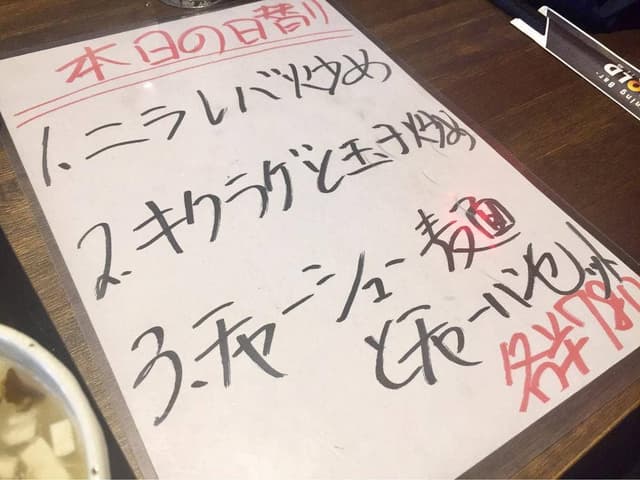 本日の日替り
1.ニラレバ炒め
2.キクラゲと玉子炒め
3.チャーシュー麺
とチャーハンセット
ning Bar.
OLD